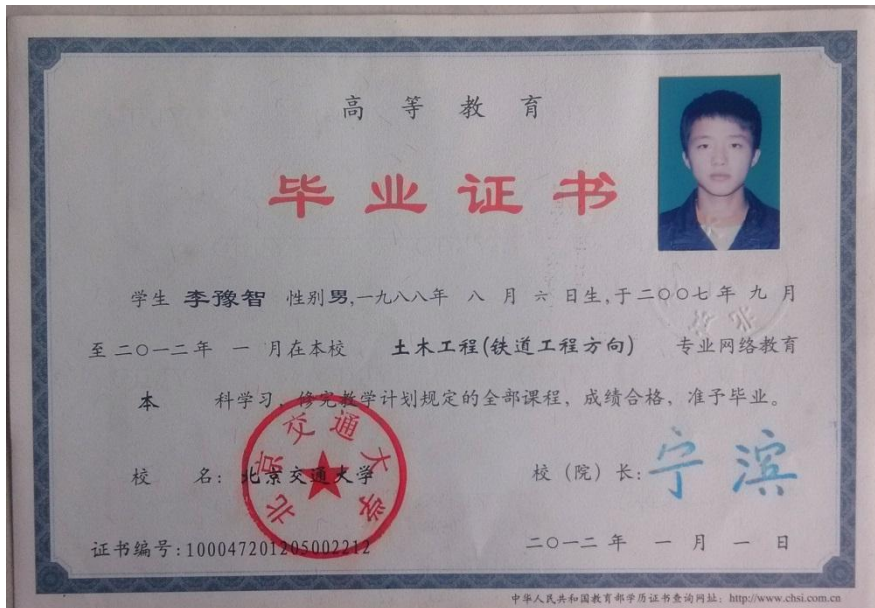 高等教育
毕业证书
学生 李豫智 性别男,一九八八年 八 月 六 日生,于二〇〇七年 九 月
至二〇一二年 一 月在本校 土木工程(铁道工程方向) 专业网络教育
本 科学习,修完教学计划规定的全部课程,成绩合格,准予毕业。
校 名:北京交通大学 校(院)长:宁滨
北京交通大学
证书编号:100047201205002212 二〇一二年 一 月 一 日
中华人民共和国教育部学历证书查询网址:http://www.chsi.com.cn